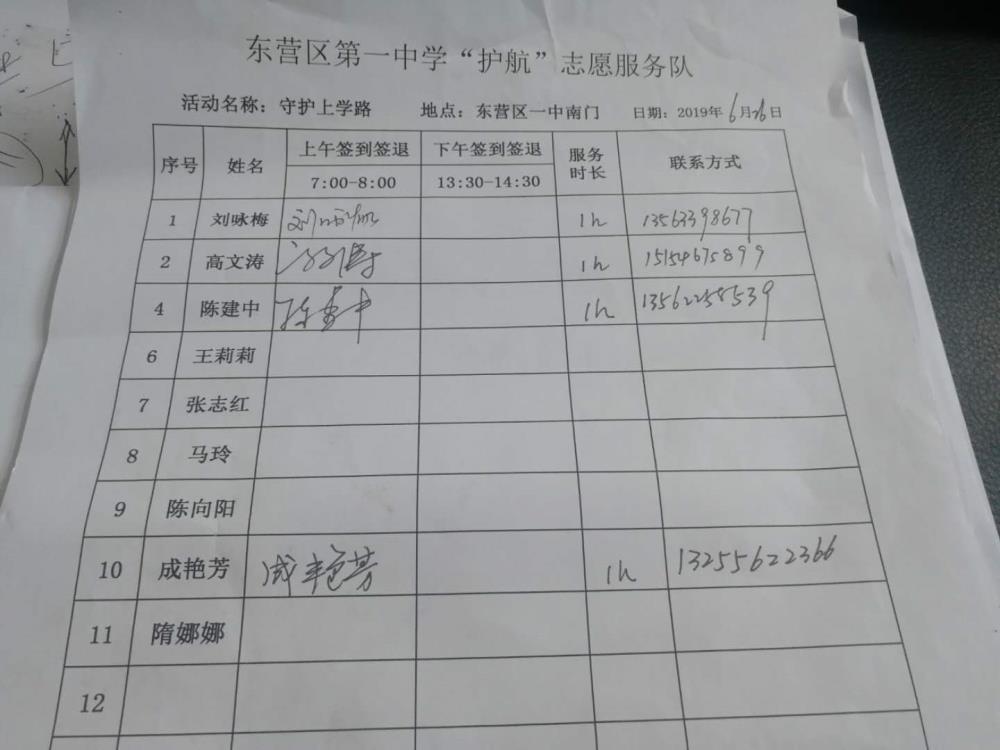 东营区第一中学“护航”志愿服务队
活动名称：守护上学路 地点：东营区一中南门 日期：2019年6月26日
序号 姓名 上午签到签退 下午签到签退 服务时长 联系方式
7:00-8:00 13:30-14:30
1 刘咏梅 刘咏梅 1h 13563398677
2 高文涛 1h 15154675899
4 陈建中 陈建中 1h 13562258539
6 王莉莉
7 张志红
8 马玲
9 陈向阳
10 成艳芳 成艳芳 1h 13255622366
11 隋娜娜
12